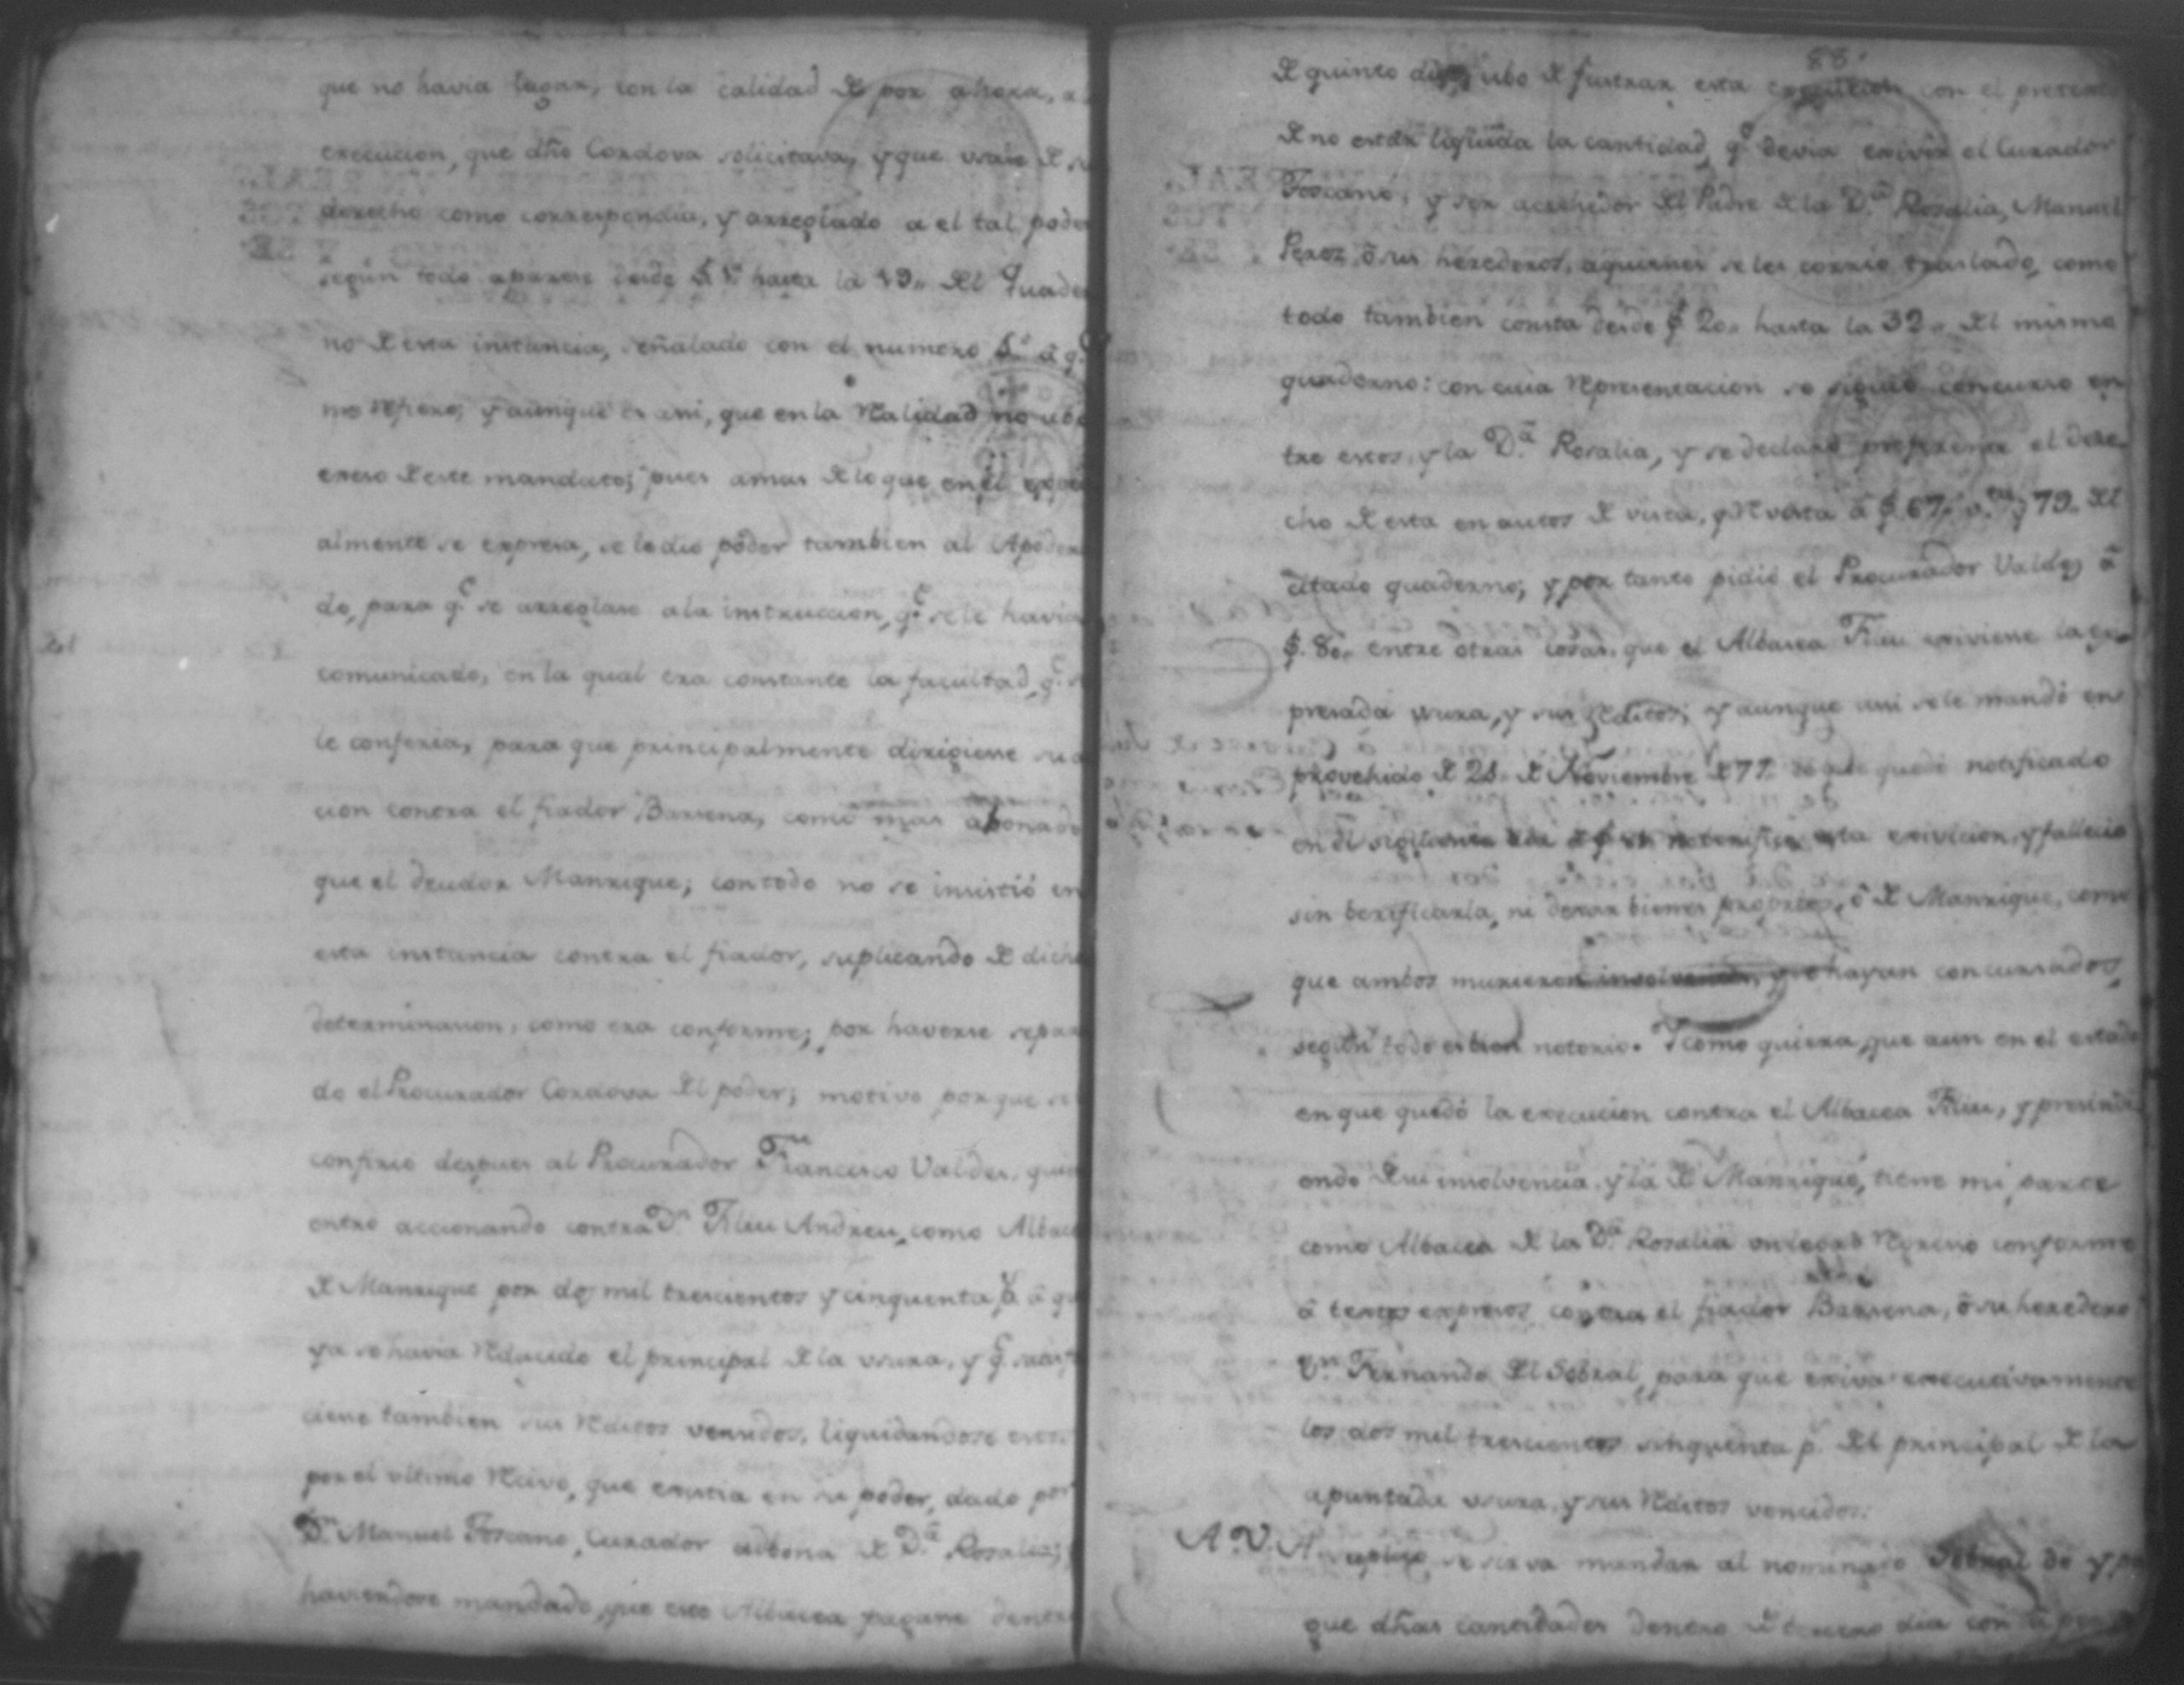 que no havia lugar, con la calidad de por ahora, a
execucion, que dho Cordova solicitava, y que usase de su
derecho como correspondia, y arreglado a el tal poder
según todo aparece desde f. 1ª hasta la 19,, del quader
no de esta instancia, señalado con el numero 5º á q.e
me refiero; y aunque es asi, que en la realidad no ubo
exeso de este mandato; pues amas de lo que en él
almente se expresa, se le dio poder tambien al Apodera
do, para q.e se arreglase a la instruccion, q.e se le havia
comunicado, en la qual era constante la facultad, q.e se
le conferia, para que principalmente dirigiese su ac
cion contra el fiador Barsena, como mas abonado
que el deudor Manrique; con todo no se insistió en
esta instancia contra el fiador, suplicando de dicha
determinacion, como era conforme; por haverse separa
do el Procurador Cordova del poder; motivo porque se
confirio despues al Procurador Francisco Valdes, quien
entro accionando contra D.n Filiu Andreu, como Albacea
de Manrique por dos mil trescientos y cinquenta p.s á q.
ya se havia reducido el principal de la usura, y q.e satisf
ciese tambien sus reditos vensidos, liquidandose estos
por el ultimo recivo, que existia en su poder, dado por
D.n Manuel Toscano, Curador adbona de D.ª Rosalia; y
haviendose mandado, que este Albacea pagase dentro
88.
de quinto dia, ubo de fustrar esta execucion con el pretexto
de no estar liquida la cantidad, q.e devia exivir el Curador
Toscano, y ser acrehedor del Padre de la D.ª Rosalia, Manuel
Perez, ó sus herederos, aquienes se les corrio traslado, como
todo tambien consta desde f. 20,, hasta la 32,, del mismo
quaderno: con cuia representacion se siguió concurso en
tre estos, y la D.ª Rosalia, y se declaró preferente el dere
cho de esta en autos de vista, y revista á f. 67,, v.ta y 79,, del
citado quaderno; y por tanto pidió el Procurador Valdes á
f. 80,, entre otras cosas, que el Albacea Filiu exiviese la ex
presada usura, y sus reditos; y aunque asi se le mandó en
provehido de 28,, de Noviembre de 77,, quedó notificado
en el siguiente dia no verificó esta exivicion, y fallecio
sin berificarla, ni dexar bienes proprios, ó de Manrique, como
que ambos murieron insolventes, y hayan concursados,
según todo es bien notorio. Y como quiera, que aun en el estado
en que quedó la execucion contra el Albacea Filiu, y presindi
endo de su insolvencia, y la de Manrique, tiene mi parte
como Albacea de la D.ª Rosalia regreso conforme
á textos expresos contra el fiador Barsena, ó su heredero
D.n Fernando del Sobral, para que exiva executivamente
los dos mil trescientos sinquenta p.s del principal de la
apuntada usura, y sus reditos vencidos.
A. V. A. suplico, se sirva mandar al nominado Sobral dé y pa
gue dhas cantidades dentro de tercero dia con